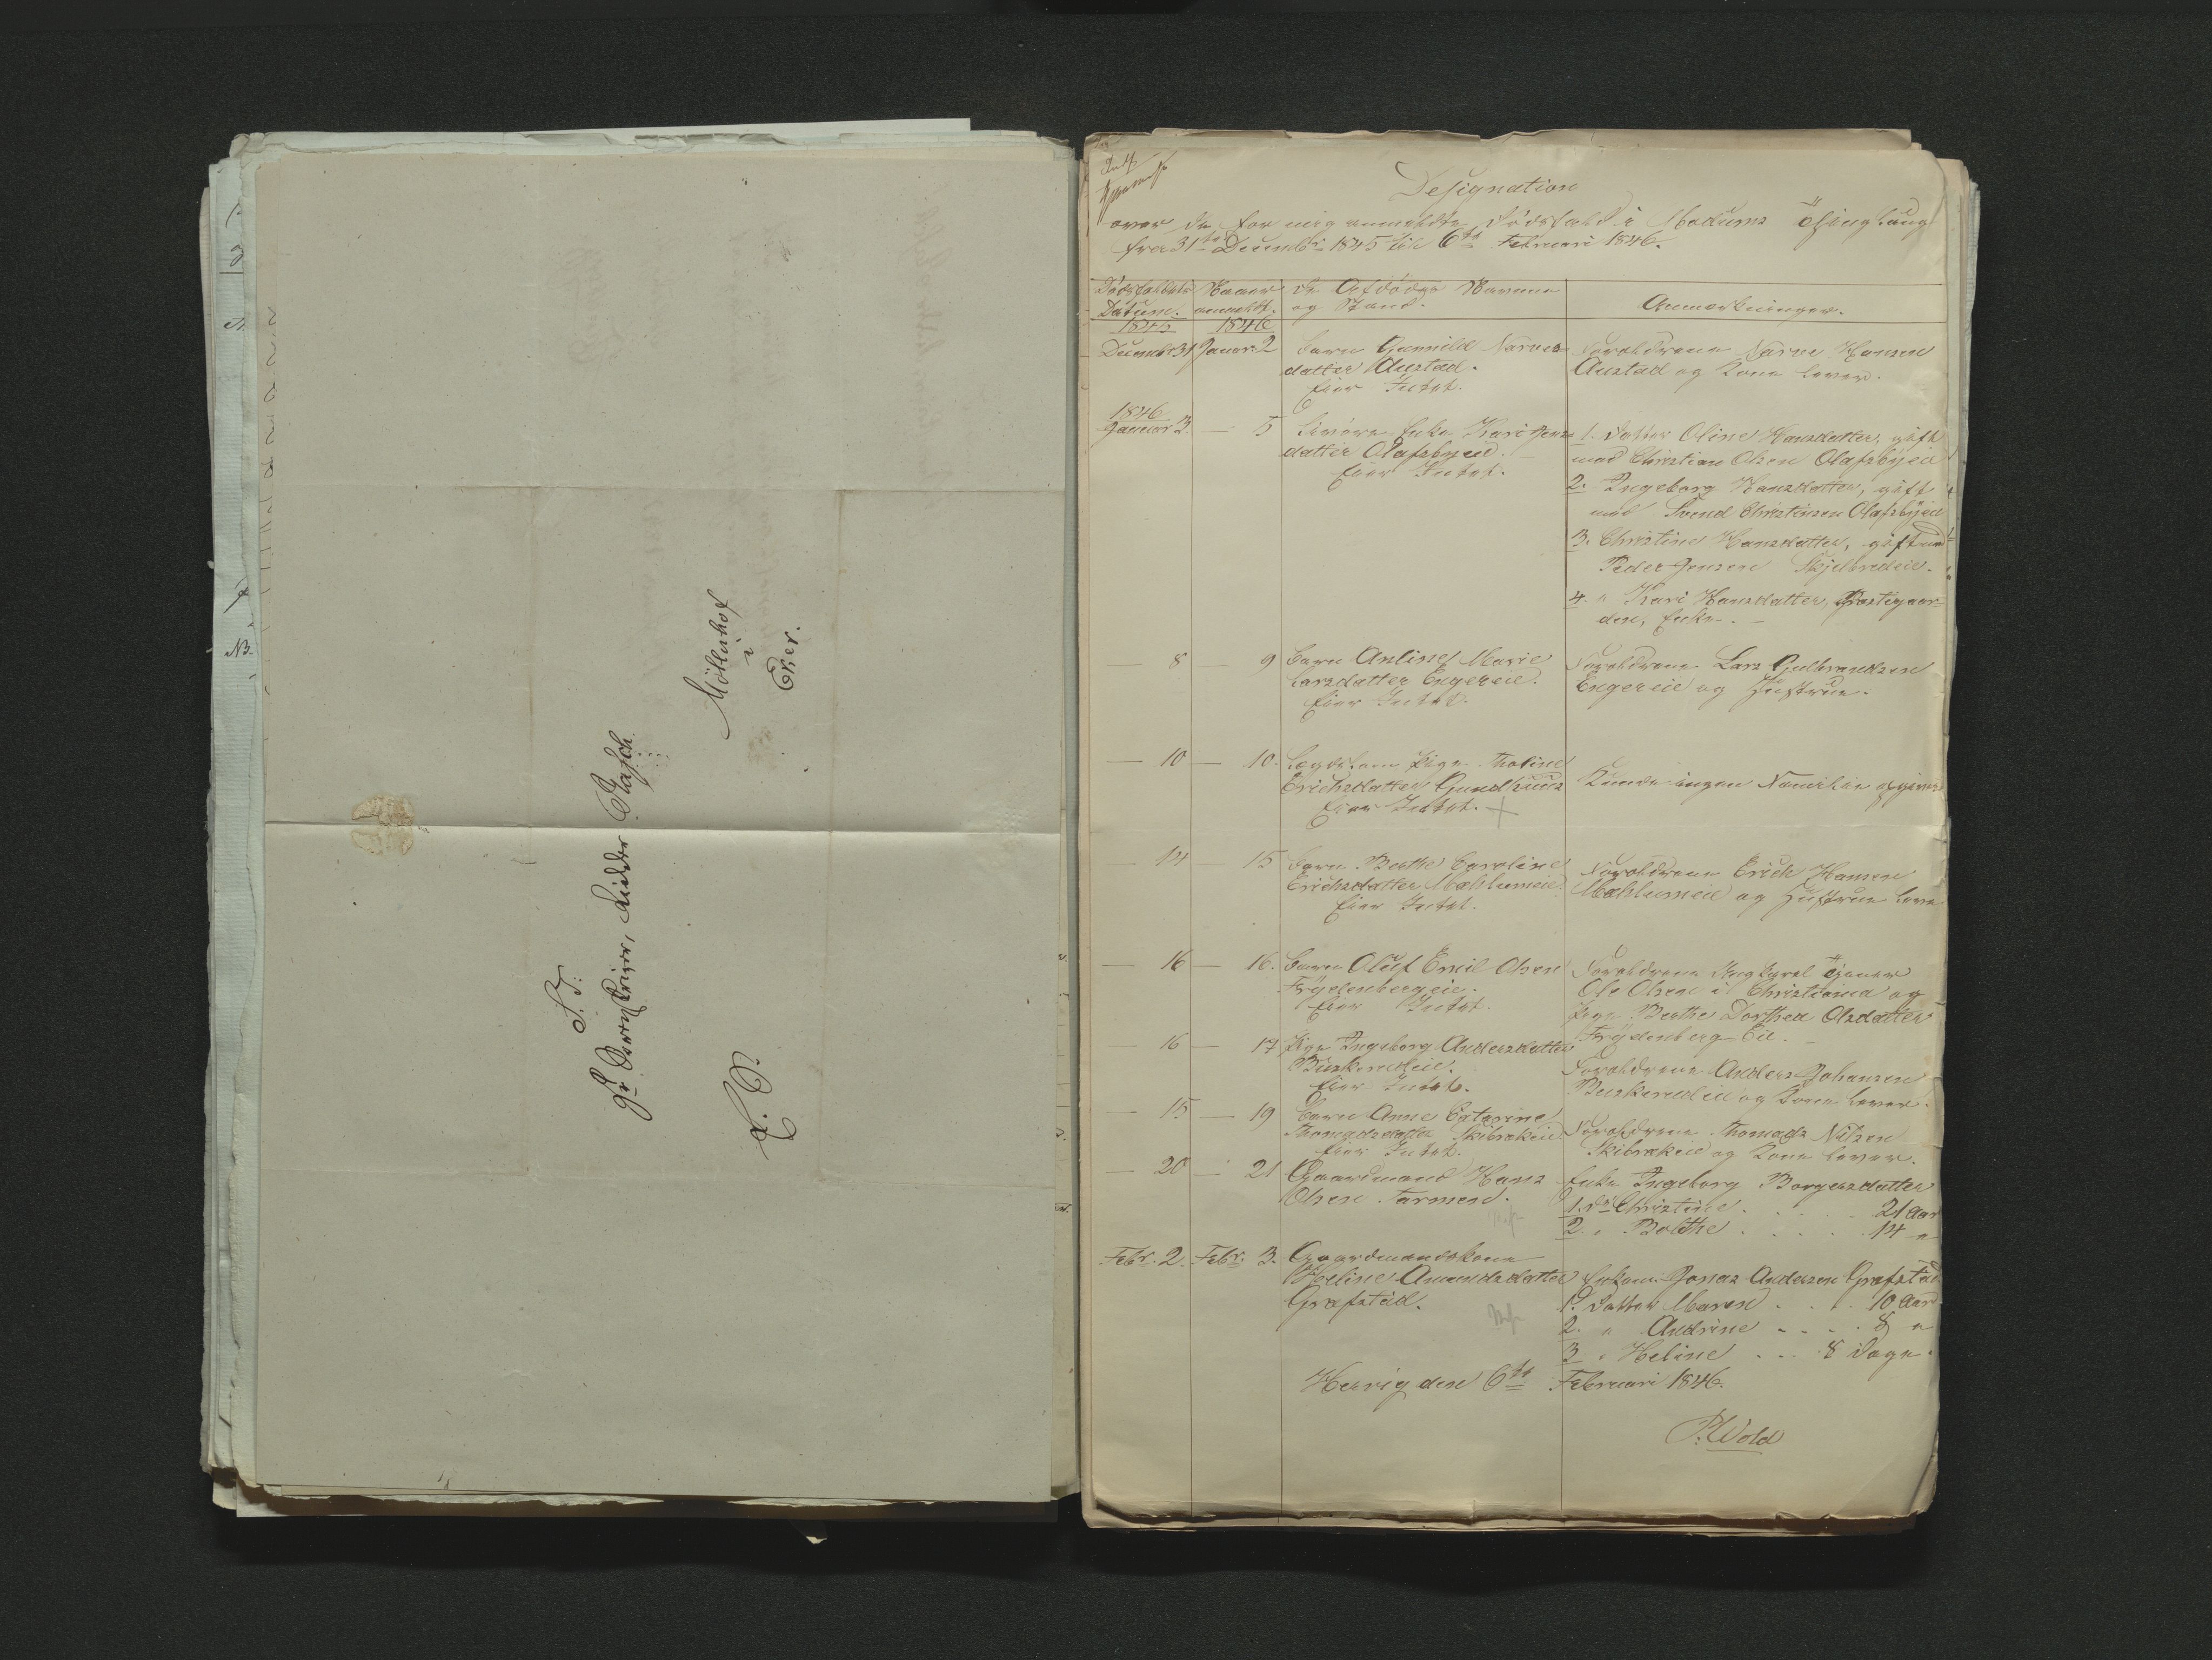 S. T.
Hr. Sorenskriver, Ridder Rasch
Möllenhof
i
Eker.
E. O.
NB.
Designation
over de for mig anmeldte Dödsfald i Modums Thinglaug
fra 31te Decembr 1845 til 6te Februari 1846.
Dödsfaldets Datum.
Naar anmeldt.
de Afdödes Navne og Stand.
Anmærkninger.
1845
1846
Decembr 31
Januar 2
barn Gunnild Narves-
datter Austad.
Eier Intet.
Forældrene Narve Hansen
Austad og Kone lever.
1846
Januar 3.
— 5
Enke Kari Jens-
datter Olafsbyeie.
Eier Intet.
1. Datter Oline Hansdatter, gift
med Christian Olsen Olafsbyeie
2. Ingeborg Hansdatter, gift
med Svend Christensen Olafsbyeie
3. Christine Hansdatter, gift med
Peder Jensen Skjelbredeie.
4. " Kari Hansdatter, Præstegaar-
den, Enke. —
— 8
— 9
barn Anline Marie
Larsdatter Engereie.
Eier Intet.
Forældrene Lars Gulbrandsen
Engereie og Hustrue.
— 10
— 10.
Lægdslem Pige Tholine
Erichsdatter Gundhuus
Eier Intet. +
Kunde ingen opgives
— 14
— 15
barn Berthe Caroline
Erichsdatter Mæhlumeie.
Eier Intet.
Forældrene Erich Hansen
Mæhlumeie og Hustrue leve
— 16
— 16.
barn Oluf Emil Olsen
Frydenbergeie.
Eier Intet.
Forældrene Ungkarl Tjener
Ole Olsen i Christiania og
Pige Berthe Dorthea Olsdatter
Frydenberg-Eie. —
— 16
— 17
Pige Ingeborg Andersdatter
Buskerudeie.
Eier Intet.
Forældrene Anders Johansen
Buskerudeie og Kone lever.
— 15
— 19
barn Anne Catarine
Thomasdatter Skibrækeie
Eier Intet.
Forældrene Thomads Nilsen
Skibrækeie og Kone lever.
— 20
— 21
Gaardmand Hans
Olsen Tarmen.
Enke Ingeborg Borgersdatter
1. Dr. Christine . . . . . 21 Aar
2. " Bolethe . . . . . 14 "
Febr. 2.
Febr. 3.
Gaardmandskone
Heline Amundsdatter
Græfstad.
Enkem. Jonas Andersen Græfstad
1. Datter Maren . . . . 10 Aar.
2. " Andrine . . . . 8 "
3 " Heline . . . 8 Dage.
Hervig den 6te Februari 1846.
P. Wold